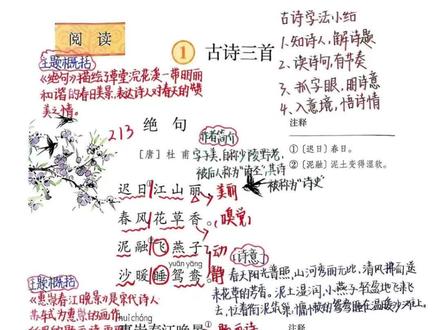 阅读
① 古诗三首
古诗学法小结
1.知诗人，解诗题
2.读诗句，有节奏
3.抓字眼，明诗意
4.入意境，悟诗情
主题概括
《绝句》描绘了草堂浣花溪一带明丽
和谐的春日美景，表达诗人对春天的赞
美之情。
213
绝句
[唐] 杜甫
作者简介
字子美，自称少陵野老，
被后人称为"诗圣"，其诗
被称为"诗史"
注释
① [迟日] 春日。
② [泥融] 泥土变得湿软。
迟日江山丽，美丽
春风花草香。(嗅觉)
泥融飞燕子，动
yuān yāng
沙暖睡鸳鸯。静
诗意：
春天阳光普照，山河秀丽无比，清风拂面送
来花草的芳香。泥土湿润，小燕子轻盈地飞来飞
去，忙着衔泥筑巢，慵懒的鸳鸯睡在温暖沙洲上。
主题概括
《惠崇春江晚景》是宋代诗人
苏轼为惠崇的画作
huì chóng
惠崇春江晚景①
注释